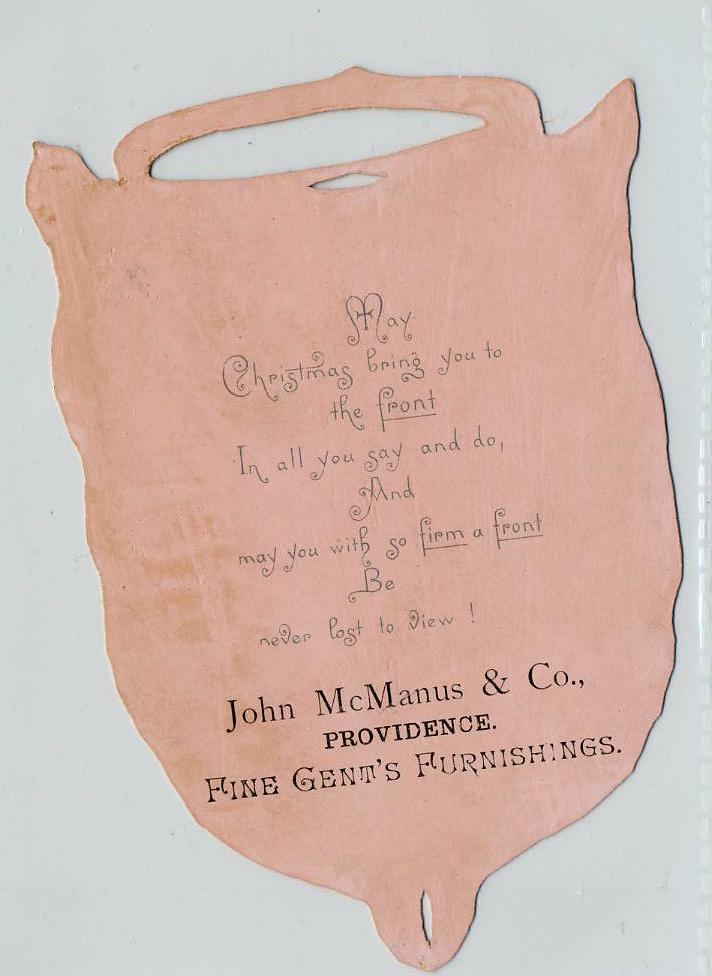 May
Christmas bring you to
the front
In all you say and do,
And
may you with so firm a front
Be
never lost to view !
John McManus & Co.,
PROVIDENCE.
FINE GENT'S FURNISHINGS.